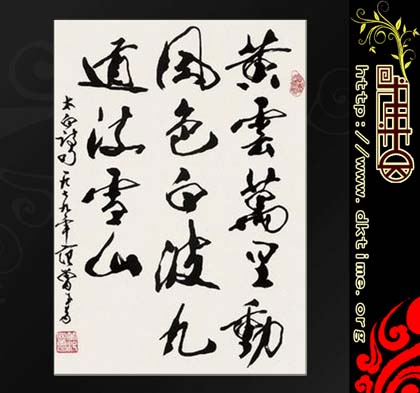 黄雲萬里動
風色白波九
道流雪山
太白詩句 一九七九年 范曾書
http://www.dktime.org